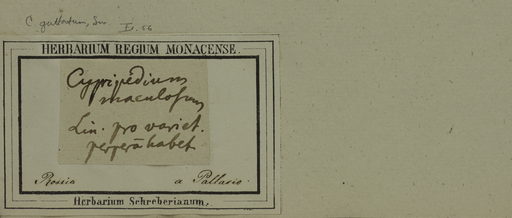 C. guttatum, Sw.
HERBARIUM REGIUM MONACENSE.
Cypripedium
maculosum
Lin. pro variet.
perperā habet
Rossia a Pallasio.
Herbarium Schreberianum,